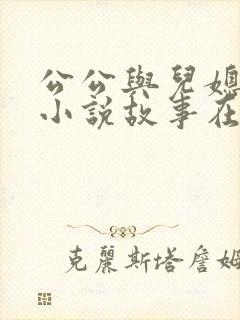 公公與兒媳
小說故事在
克麗斯塔詹姆